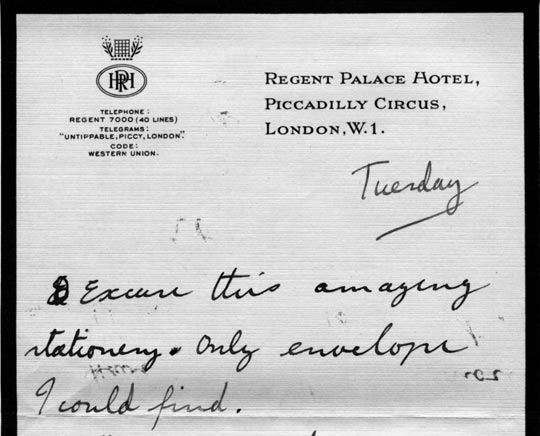 HPRH
REGENT PALACE HOTEL,
PICCADILLY CIRCUS,
LONDON, W.1.
TELEPHONE:
REGENT 7000 (40 LINES)
TELEGRAMS:
"UNTIPPABLE, PICCY, LONDON".
CODE:
WESTERN UNION.
Tuesday
Excuse this amazing
stationery. Only envelope
I could find.